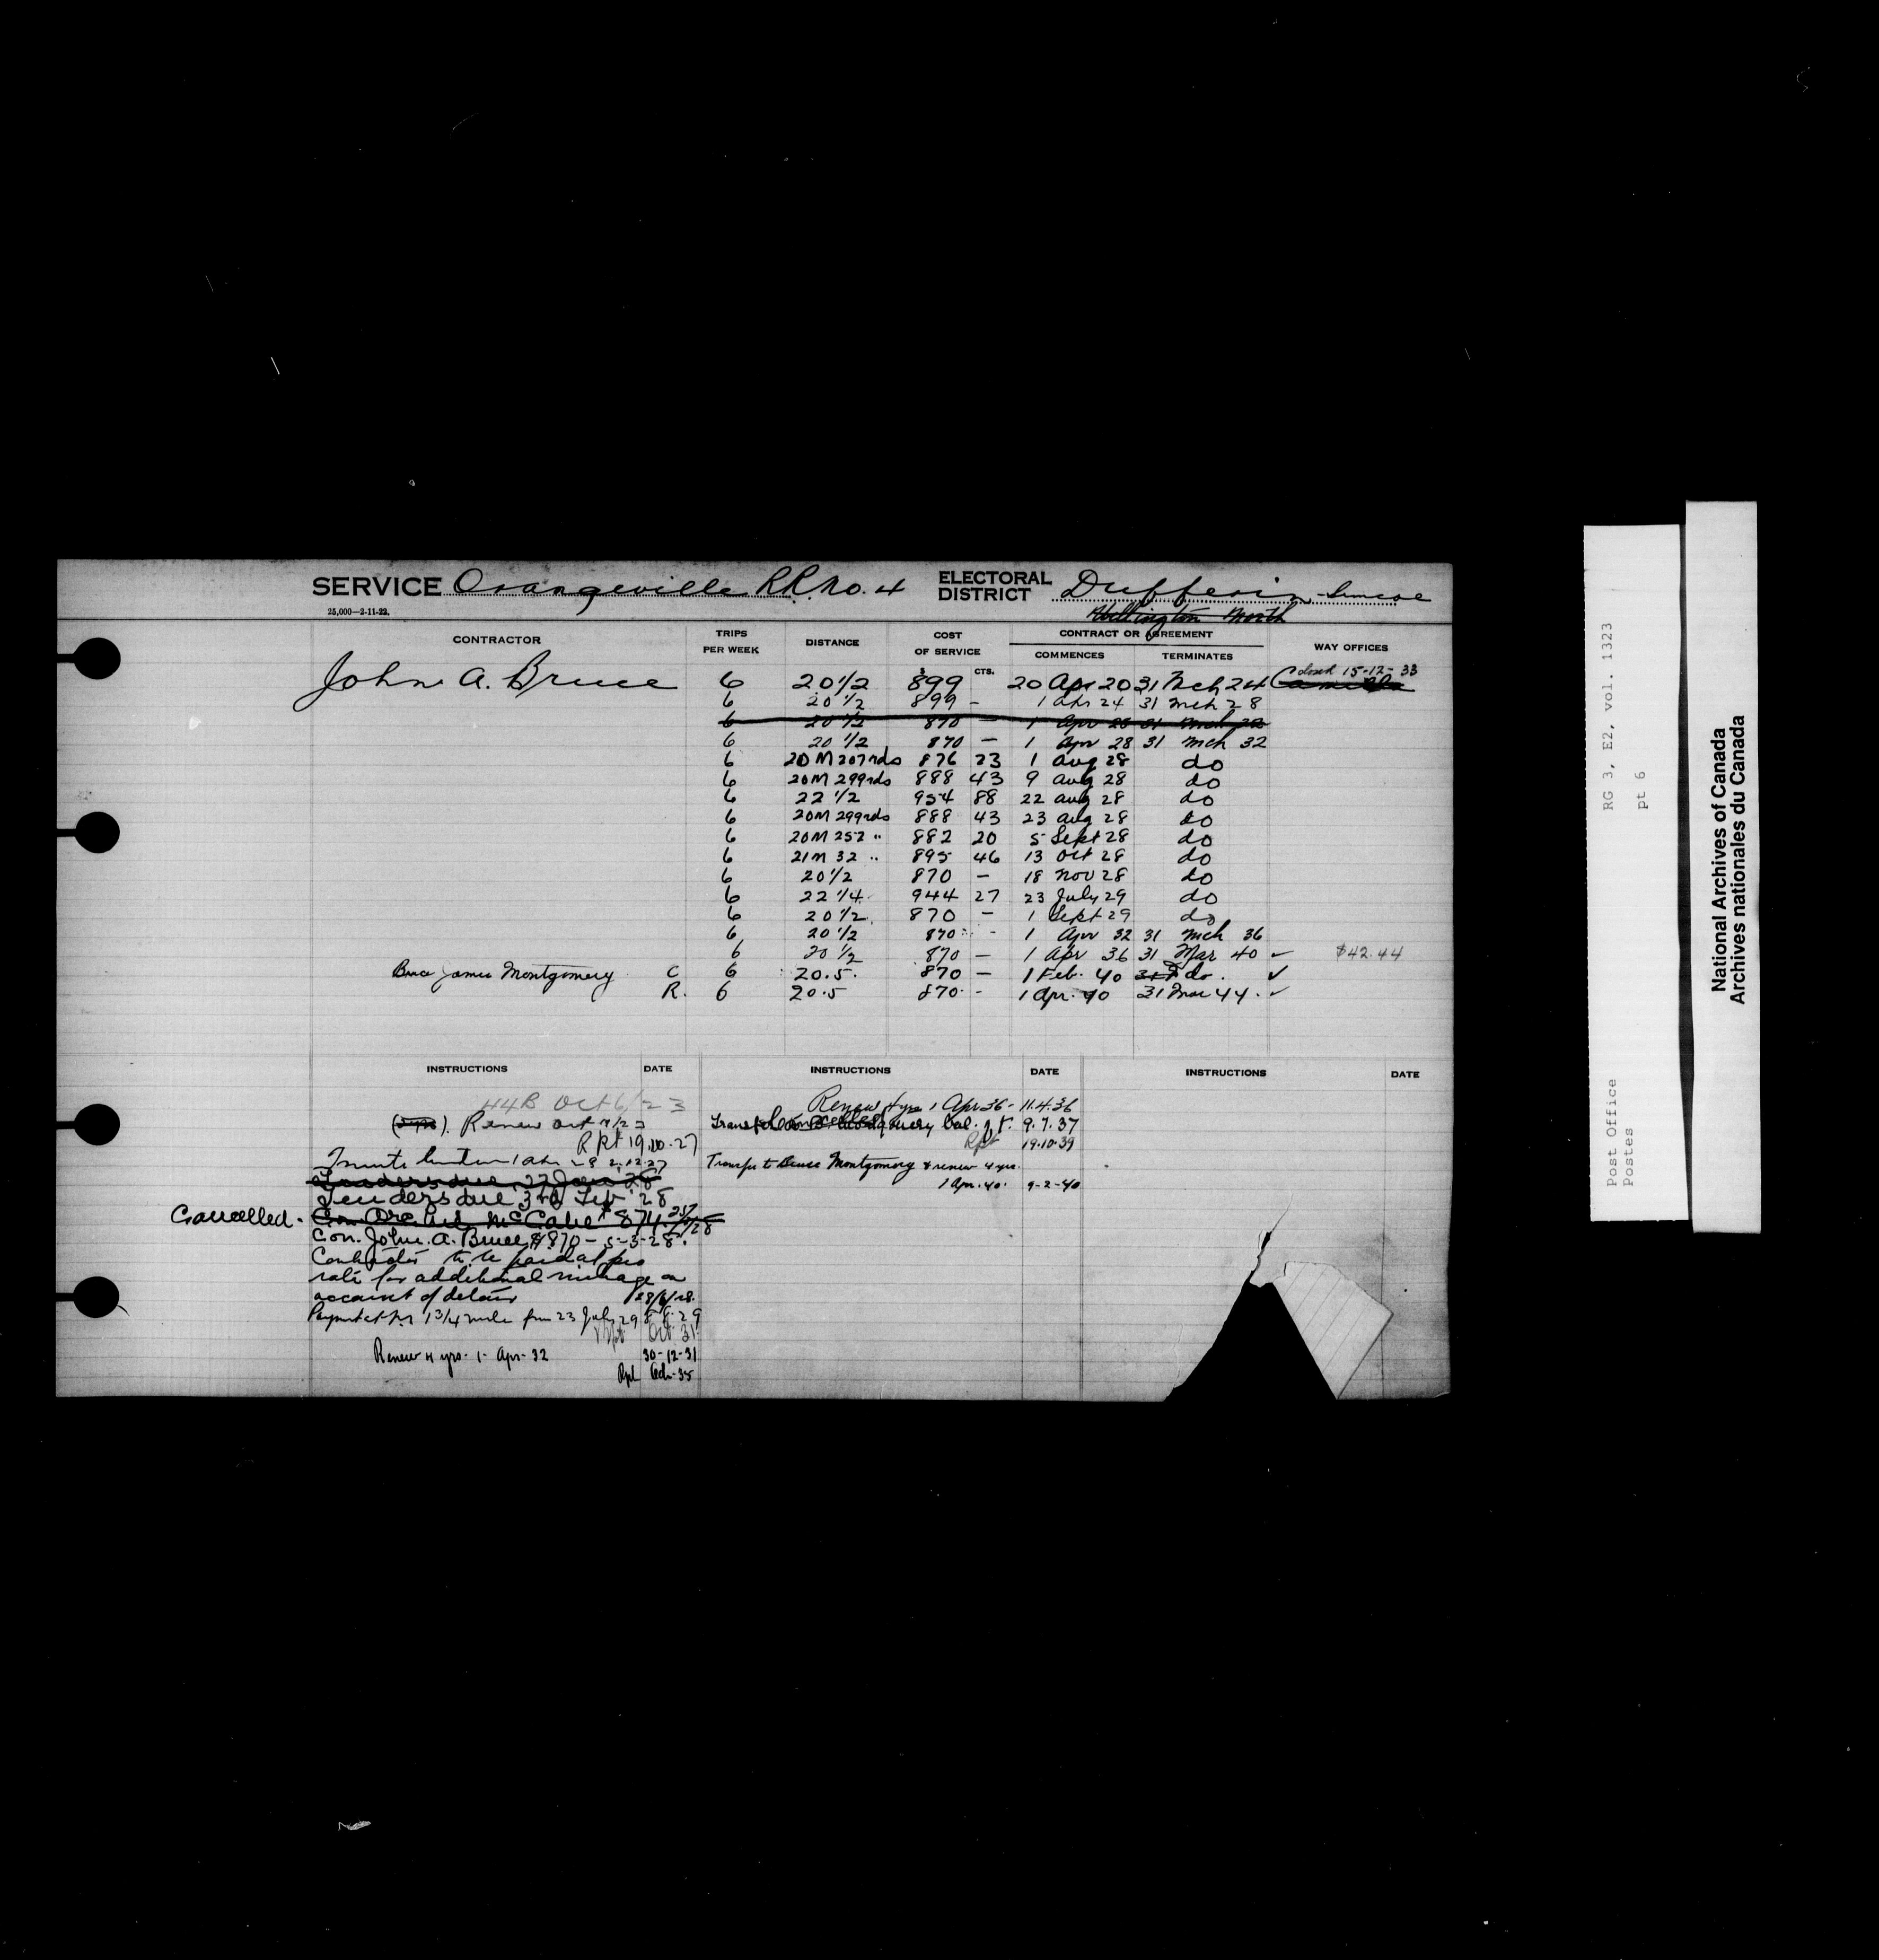 SERVICE Orangeville R.R. No. 4 ELECTORAL DISTRICT Dufferin-Simcoe
25,000—2-11-22.
Wellington North
CONTRACTOR TRIPS PER WEEK DISTANCE COST OF SERVICE CONTRACT OR AGREEMENT WAY OFFICES
$ CTS. COMMENCES TERMINATES
Closed 15-12-33
John A. Bruce 6 20 1/2 899 20 Apr 20 31 Mch 24 Camilla
6 20 1/2 899 - 1 Apr 24 31 Mch 28
6 20 1/2 870 - 1 Apr 28 31 Mch 32
6 20 1/2 870 — 1 Apr 28 31 Mch 32
6 20 M 207 rds 876 23 1 Aug 28 do
6 20M 299 rds 888 43 9 Aug 28 do
6 22 1/2 954 88 22 Aug 28 do
6 20M 299 rds 888 43 23 Aug 28 do
6 20M 252 " 882 20 5 Sept 28 do
6 21M 32 " 895 46 13 Oct 28 do
6 20 1/2 870 — 18 Nov 28 do
6 22 1/4 944 27 23 July 29 do
6 20 1/2 870 — 1 Sept 29 do
6 20 1/2 870 - 1 Apr 32 31 Mch 36
6 20 1/2 870 — 1 Apr 36 31 Mar 40 ✓ $42.44
Bruce James Montgomery C 6 20.5. 870 — 1 Feb. 40 do. ✓
R. 6 20.5 870 - 1 Apr. 40 31 Mar 44. ✓
INSTRUCTIONS DATE INSTRUCTIONS DATE INSTRUCTIONS DATE
44B Oct 6/23
Renew Oct
Rpt 19.10.27
2.12.27
Tenders due 27 Jan 28
Tenders due 3rd Feb 28
Cancelled. Con. McCabe $874.
Con. John. A. Bruce $870 — 5-3-28.
Contractor to be paid at pro
rate for additional mileage on
account of detour 28/8/28.
Payment at 1 3/4 mile from 23 July 29 8.8.29
Rpt Oct 31
Renew 4 yrs. 1- Apr- 32 30-12-31
Rpt 35
Renew 4 yrs 1 Apr 36 - 11.4.36
9.7.37
Rpt 19.10.39
Transfer to Bruce Montgomery & renew 4 yrs.
1 Apr. 40. 9-2-40
RG 3, E2, vol. 1323
pt 6
Post Office
Postes
National Archives of Canada
Archives nationales du Canada